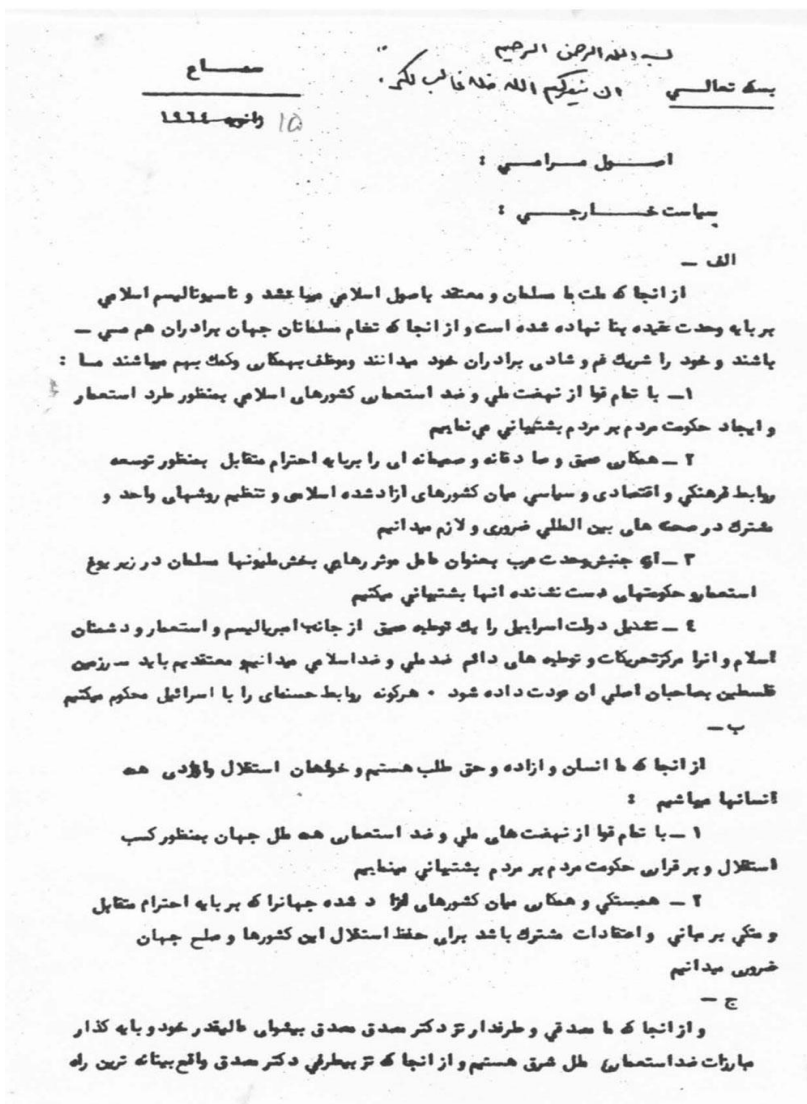 بسم الله الرحمن الرحیم
سماع
بسمه تعالـــی ان ینصرکم الله فلا غالب لکم .
15 ژانویه ١٩٦٤
اصـــول مـــرامـــي :
سیاست خـــــارجـــــي :
الف ـ
از انجا که ملت ما مسلمان و معتقد باصول اسلامي میباشد و ناسیونالیسم اسلامي
بر پایه وحدت عقیده بنا نهاده شده است و از انجا که تمام مسلمانان جهان برادران هم مـي ـ
باشند و خود را شریك غم و شادی برادران خود میدانند وموظف بهمکاری وکمك بهم میباشند مـا :
١ـ با تمام قوا از نهضت ملي و ضد استعماری کشورهای اسلامي بمنظور طرد استعمار
و ایجاد حکومت مردم بر مردم پشتیباني می نماییم
٢ ـ همکاری عمیق و صادقانه و صمیمانه ای را برپایه احترام متقابل بمنظور توسعه
روابط فرهنگي و اقتصادی و سیاسي میان کشورهای ازاد شده اسلامی و تنظیم روشهای واحد و
مشترك در صحنه های بین المللي ضروری و لازم میدانیم
٣ ـ از جنبش وحدت عرب بعنوان عامل موثر رهایي بخش ملیونها مسلمان در زیر یوغ
استعمار و حکومتهای دست نشانده انها پشتیباني میکنیم
٤ ـ تشکیل دولت اسراییل را یك توطیه عمیق از جانب امپریالیسم و استعمار و دشمنان
اسلام و انرا مرکز تحریکات و توطیه های دائم ضد ملي و ضد اسلامي میدانیم و معتقدیم باید سـرزمین
فلسطین بصاحبان اصلي ان عودت داده شود . هرگونه روابط حسنهای را با اسرائیل محکوم میکنیم
ب ـ
از انجا که ما انسان و ازاده و حق طلب هستیم و خواهان استقلال وازادی همه
انسانها میباشیم :
١ ـ با تمام قوا از نهضت های ملي و ضد استعماری همه ملل جهان بمنظور کسب
استقلال و بر قراری حکومت مردم بر مردم پشتیباني مینماییم
٢ ـ همبستگي و همکاری میان کشورهای ازاد شده جهانرا که بر پایه احترام متقابل
و متکي بر مباني و اعتقادات مشترك باشد برای حفظ استقلال این کشورها و صلح جهان
ضروری میدانیم
ج ـ
و از انجا که ما مصدقي و طرفدار تز دکتر مصدق مصدق پیشوای عالیقدر خود و پایه گذار
مبارزات ضد استعماری ملل شرق هستیم و از انجا که تز بیطرفي دکتر مصدق واقع بینانه ترین راه